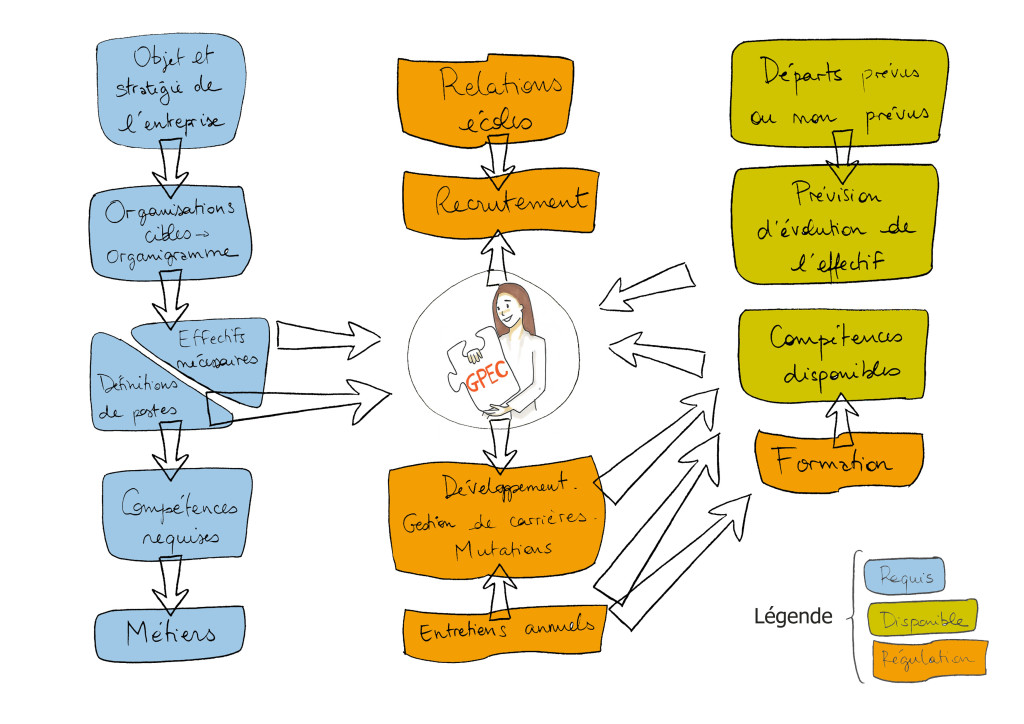 Objet et
stratégie de
l'entreprise
Organisations
cibles →
Organigramme
Effectifs
nécessaires
Définitions
de postes
Compétences
requises
Métiers
Relations
écoles
Recrutement
GPEC
Développement.
Gestion de carrières.
Mutations
Entretiens annuels
Départs prévus
ou non prévus
Prévision
d'évolution de
l'effectif
Compétences
disponibles
Formation
Légende
Requis
Disponible
Régulation